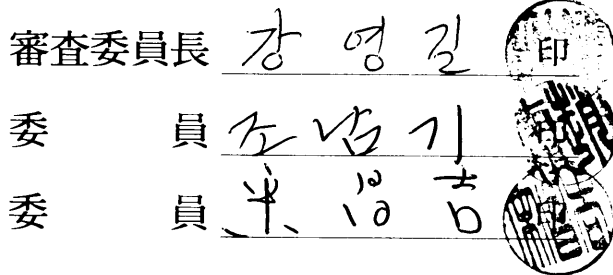 審査委員長 강영길 印
委員 조남기 印
委員 印